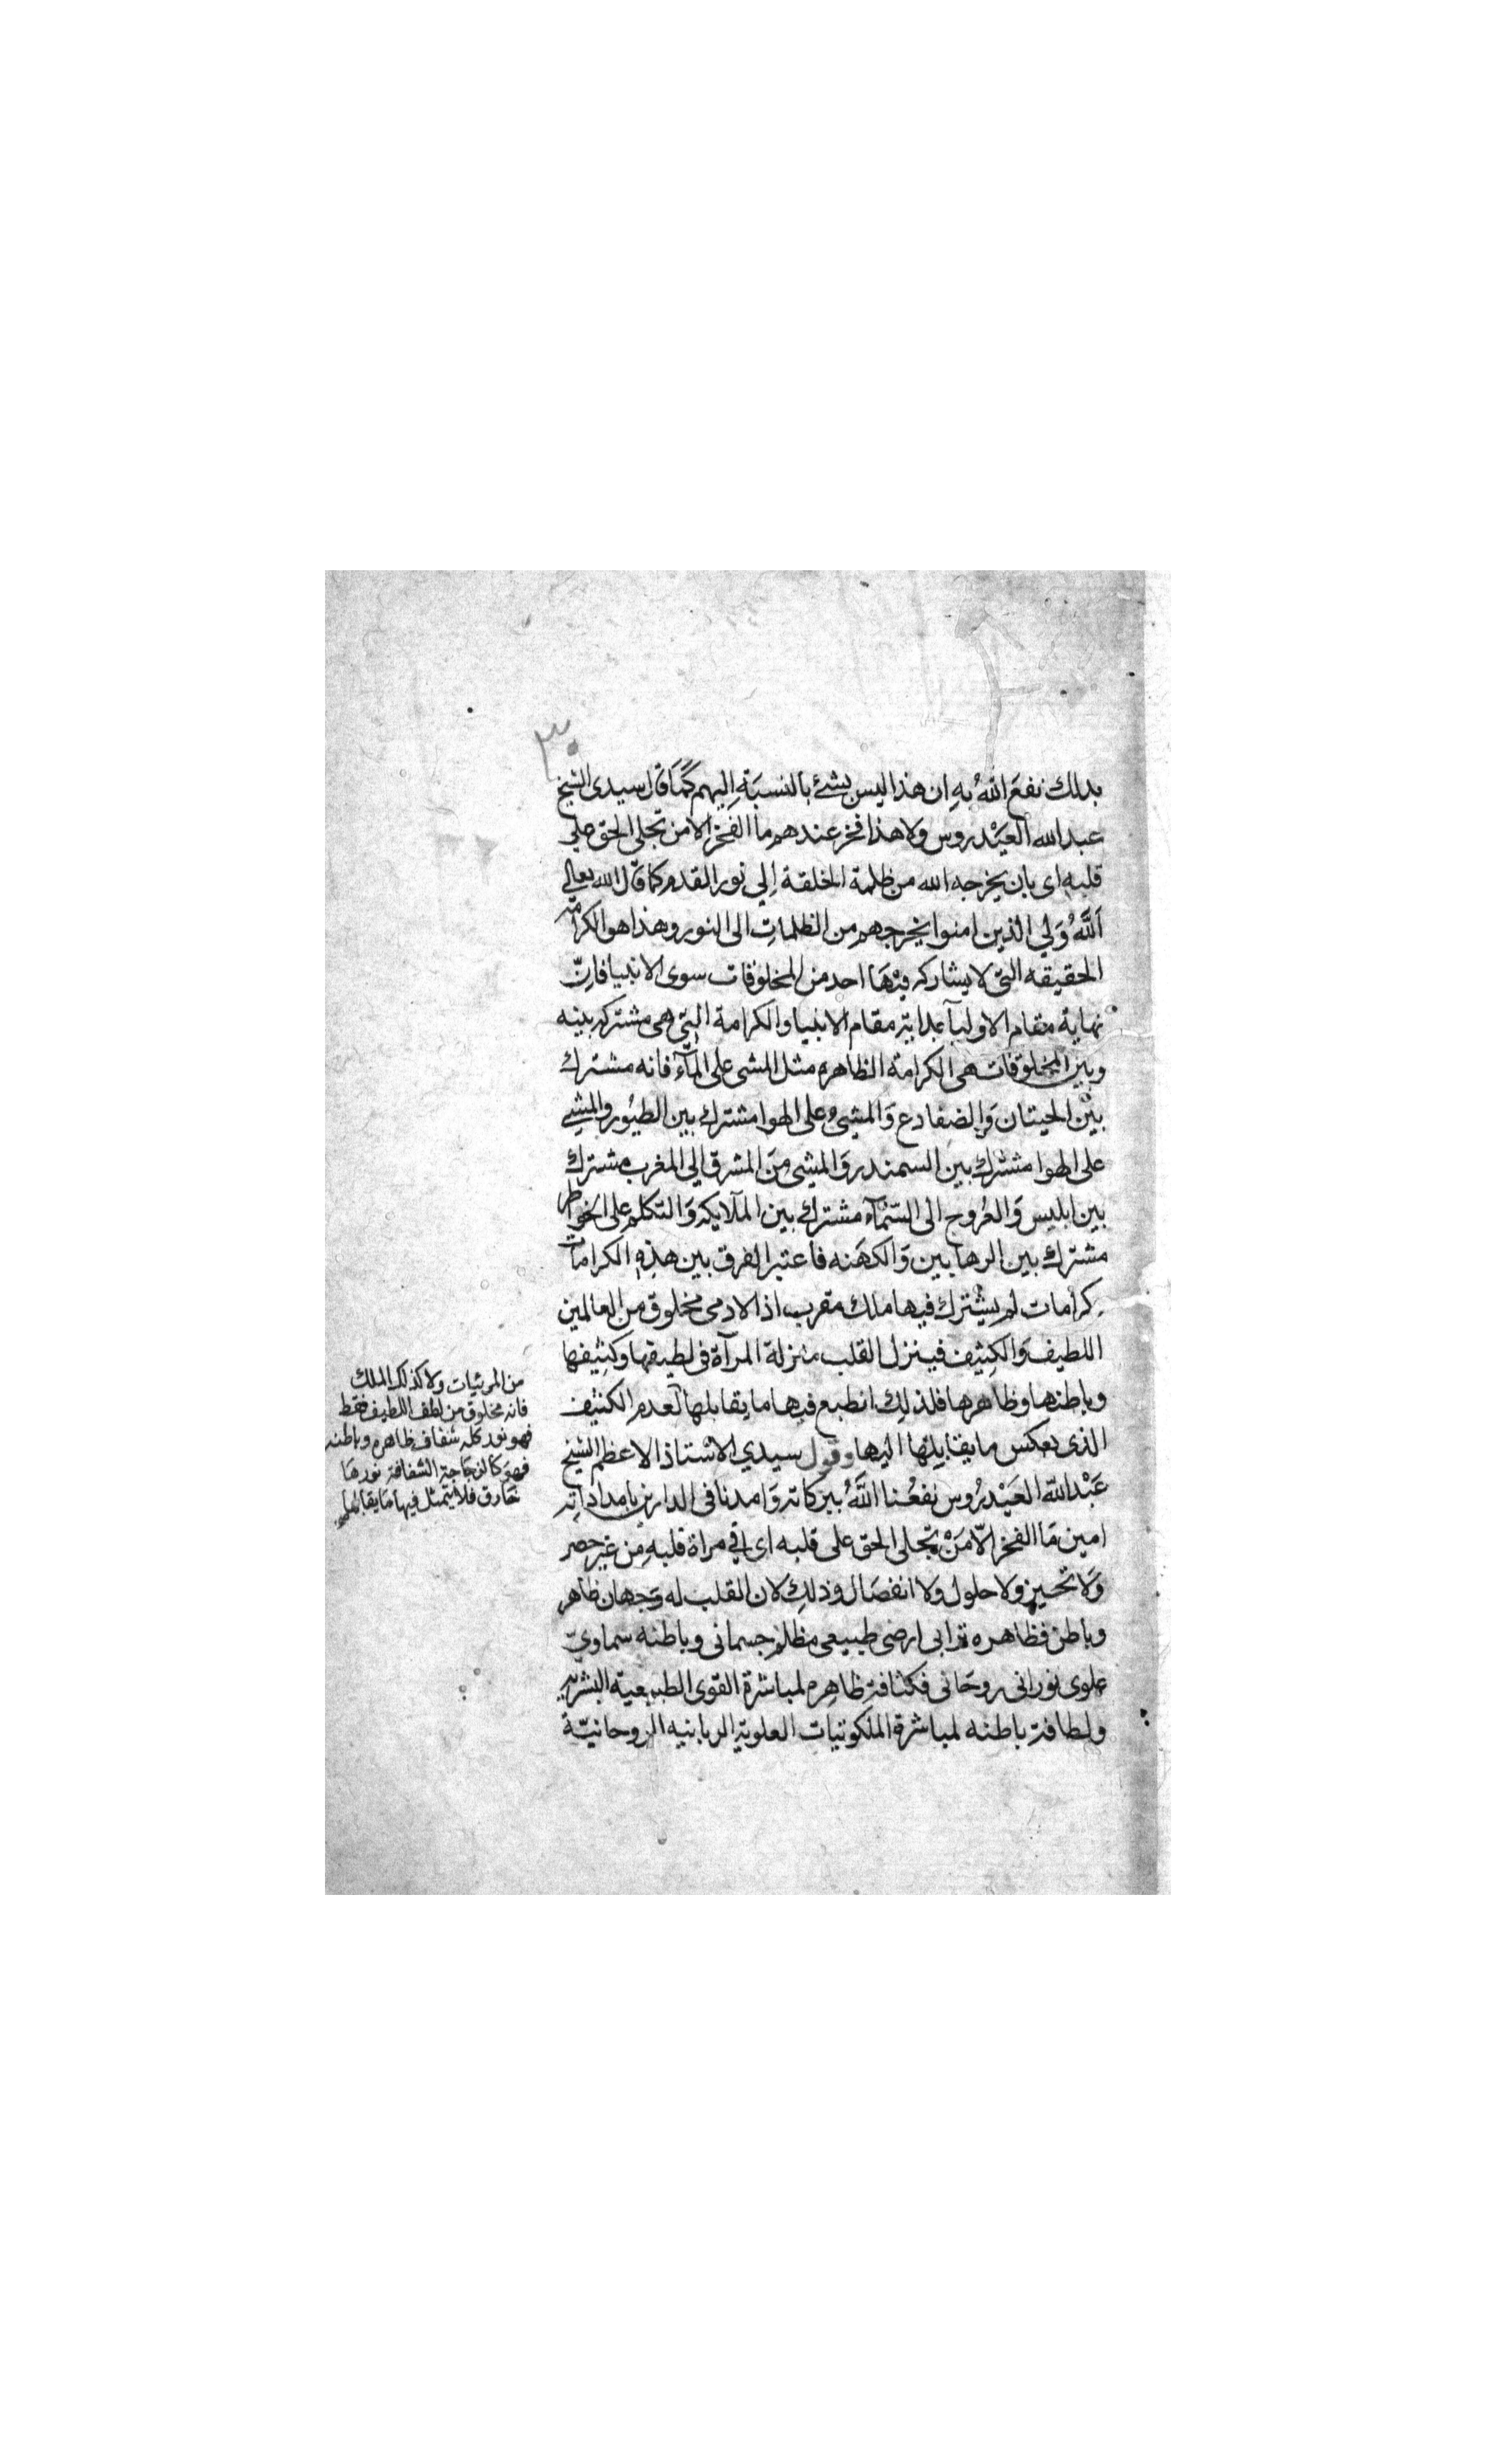 ٣٠
بذلك نفعَ اللهُ بهِ ان هذا ليس بشئ بالنسبَةِ إليهم كَمَا قال سيدى الشيخ
عبد الله العَيْدروس ولا هذا فخر عندهم ما الفَخرُ الا من تجلى الحق على
قلبه اى بان يخرجه الله من ظلمة الخلقة إلي نور القدم كما قال الله تعالى
اَللَّهُ وَلي الذين امنوا يخرجهم من الظلماتِ الى النور وهذا هو الكرامة
الحقيقه التى لا يشاركه فيْهَا احد من المخلوقات سوى الانبيا فاِنّ
نهاية مقام الاوليآ بداية مقام الانبيا والكرامة التى هى مشتركه بينه
وبين المخلوقات هى الكرامة الظاهره مثل المشى على المآء فانه مشترك
بيْن الحيتان وَالضفادع وَالمشىُ على الهوا مشترك بين الطيُور والمشي
على الهوا مشترك بين السمندر وَالمشى مِنَ المشرق الي المغرب مشترك
بين ابليس وَالعُروج الى السّمآء مشترك بين الملايكه وَالتكلم على الخواطر
مشترك بين الرهابين وَالكهَنه فاعتبر الفرق بين هذِهِ الكرامات
كرامات لم يشترك فيها ملك مقرب اذ الادمى مخلوق من العالمين
اللطيف وَالكِثِيف فينزل القلب منزلة المرآة فى لطيفها وكثيفها
وباطنها وظاهرها فلذلِك انطبع فيها ما يقابلها لعدم الكثيف
الذى يعكس ما يقابلها اليها وقول سيدي الاستاذ الاعظم الشيخ
عَبْد الله العَيْدرُوس نفعُنا اللَّهُ ببركاته وَامدنا فى الدارين بامداداته
امين مَا الفخر الّا مَنْ تجلى الحق على قلبه اى في مراة قلبهِ مِن غير حصر
وَلا تحيز ولا حلول ولا انفصَال وذلك لان القلب له وَجهان ظاهر
وباطن فظاهره ترابى ارضى طبيعى مظلم جسمانى وباطنه سماويّ
علوى نورانى روحَانى فكثافة ظاهِره لمباشرة القوى الطبيعية البشرية
ولطافة باطنه لمباشرة الملكوتيات العلوية الربانيه الروحانيّة
من المرئيات ولا كذلك الملك
فانه مخلوق من لطف اللطيف فقط
فهو نور كله شفاف ظاهره وباطنه
فهوَ كالزجَاجة الشفافة نورهَا
خَارق فلا يتمثل فيها مَا يقابلها